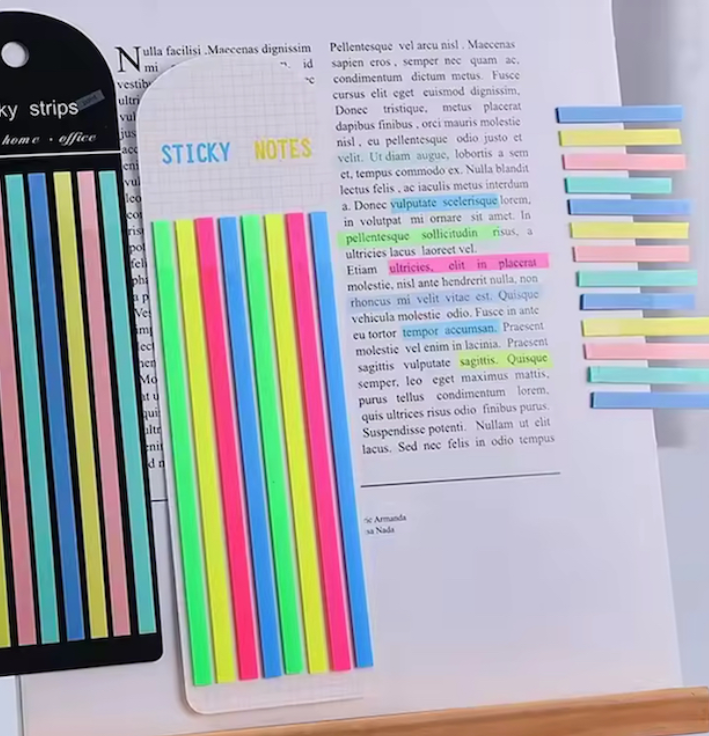 ky strips
home · office
STICKY NOTES
Nulla facilisi .Maecenas dignissim
mi
id
Pellentesque vel arcu nisl . Maecenas
sapien eros , semper nec quam ac,
condimentum dictum metus. Fusce
cursus elit eget euismod dignissim,
Donec tristique, metus placerat
dapibus finibus , orci mauris molestie
nisl , eu pellentesque odio justo et
velit. Ut diam augue, lobortis a sem
et, tempus commodo ex. Nulla blandit
lectus felis , ac iaculis metus interdum
a. Donec vulputate scelerisque lorem,
in volutpat mi ornare sit amet. In
pellentesque sollicitudin risus, a
ultricies lacus laoreet vel.
Etiam ultricies, elit in placerat
molestie, nisl ante hendrerit nulla, non
rhoncus mi velit vitae est. Quisque
vehicula molestie odio. Fusce in ante
eu tortor tempor accumsan. Praesent
molestie vel enim in lacinia. Praesent
sagittis vulputate sagittis. Quisque
semper, leo eget maximus mattis,
purus tellus condimentum lorem,
quis ultrices risus odio finibus purus.
Suspendisse potenti. Nullam ut elit
lacus. Sed nec felis in odio tempus
Armanda
sa Nada